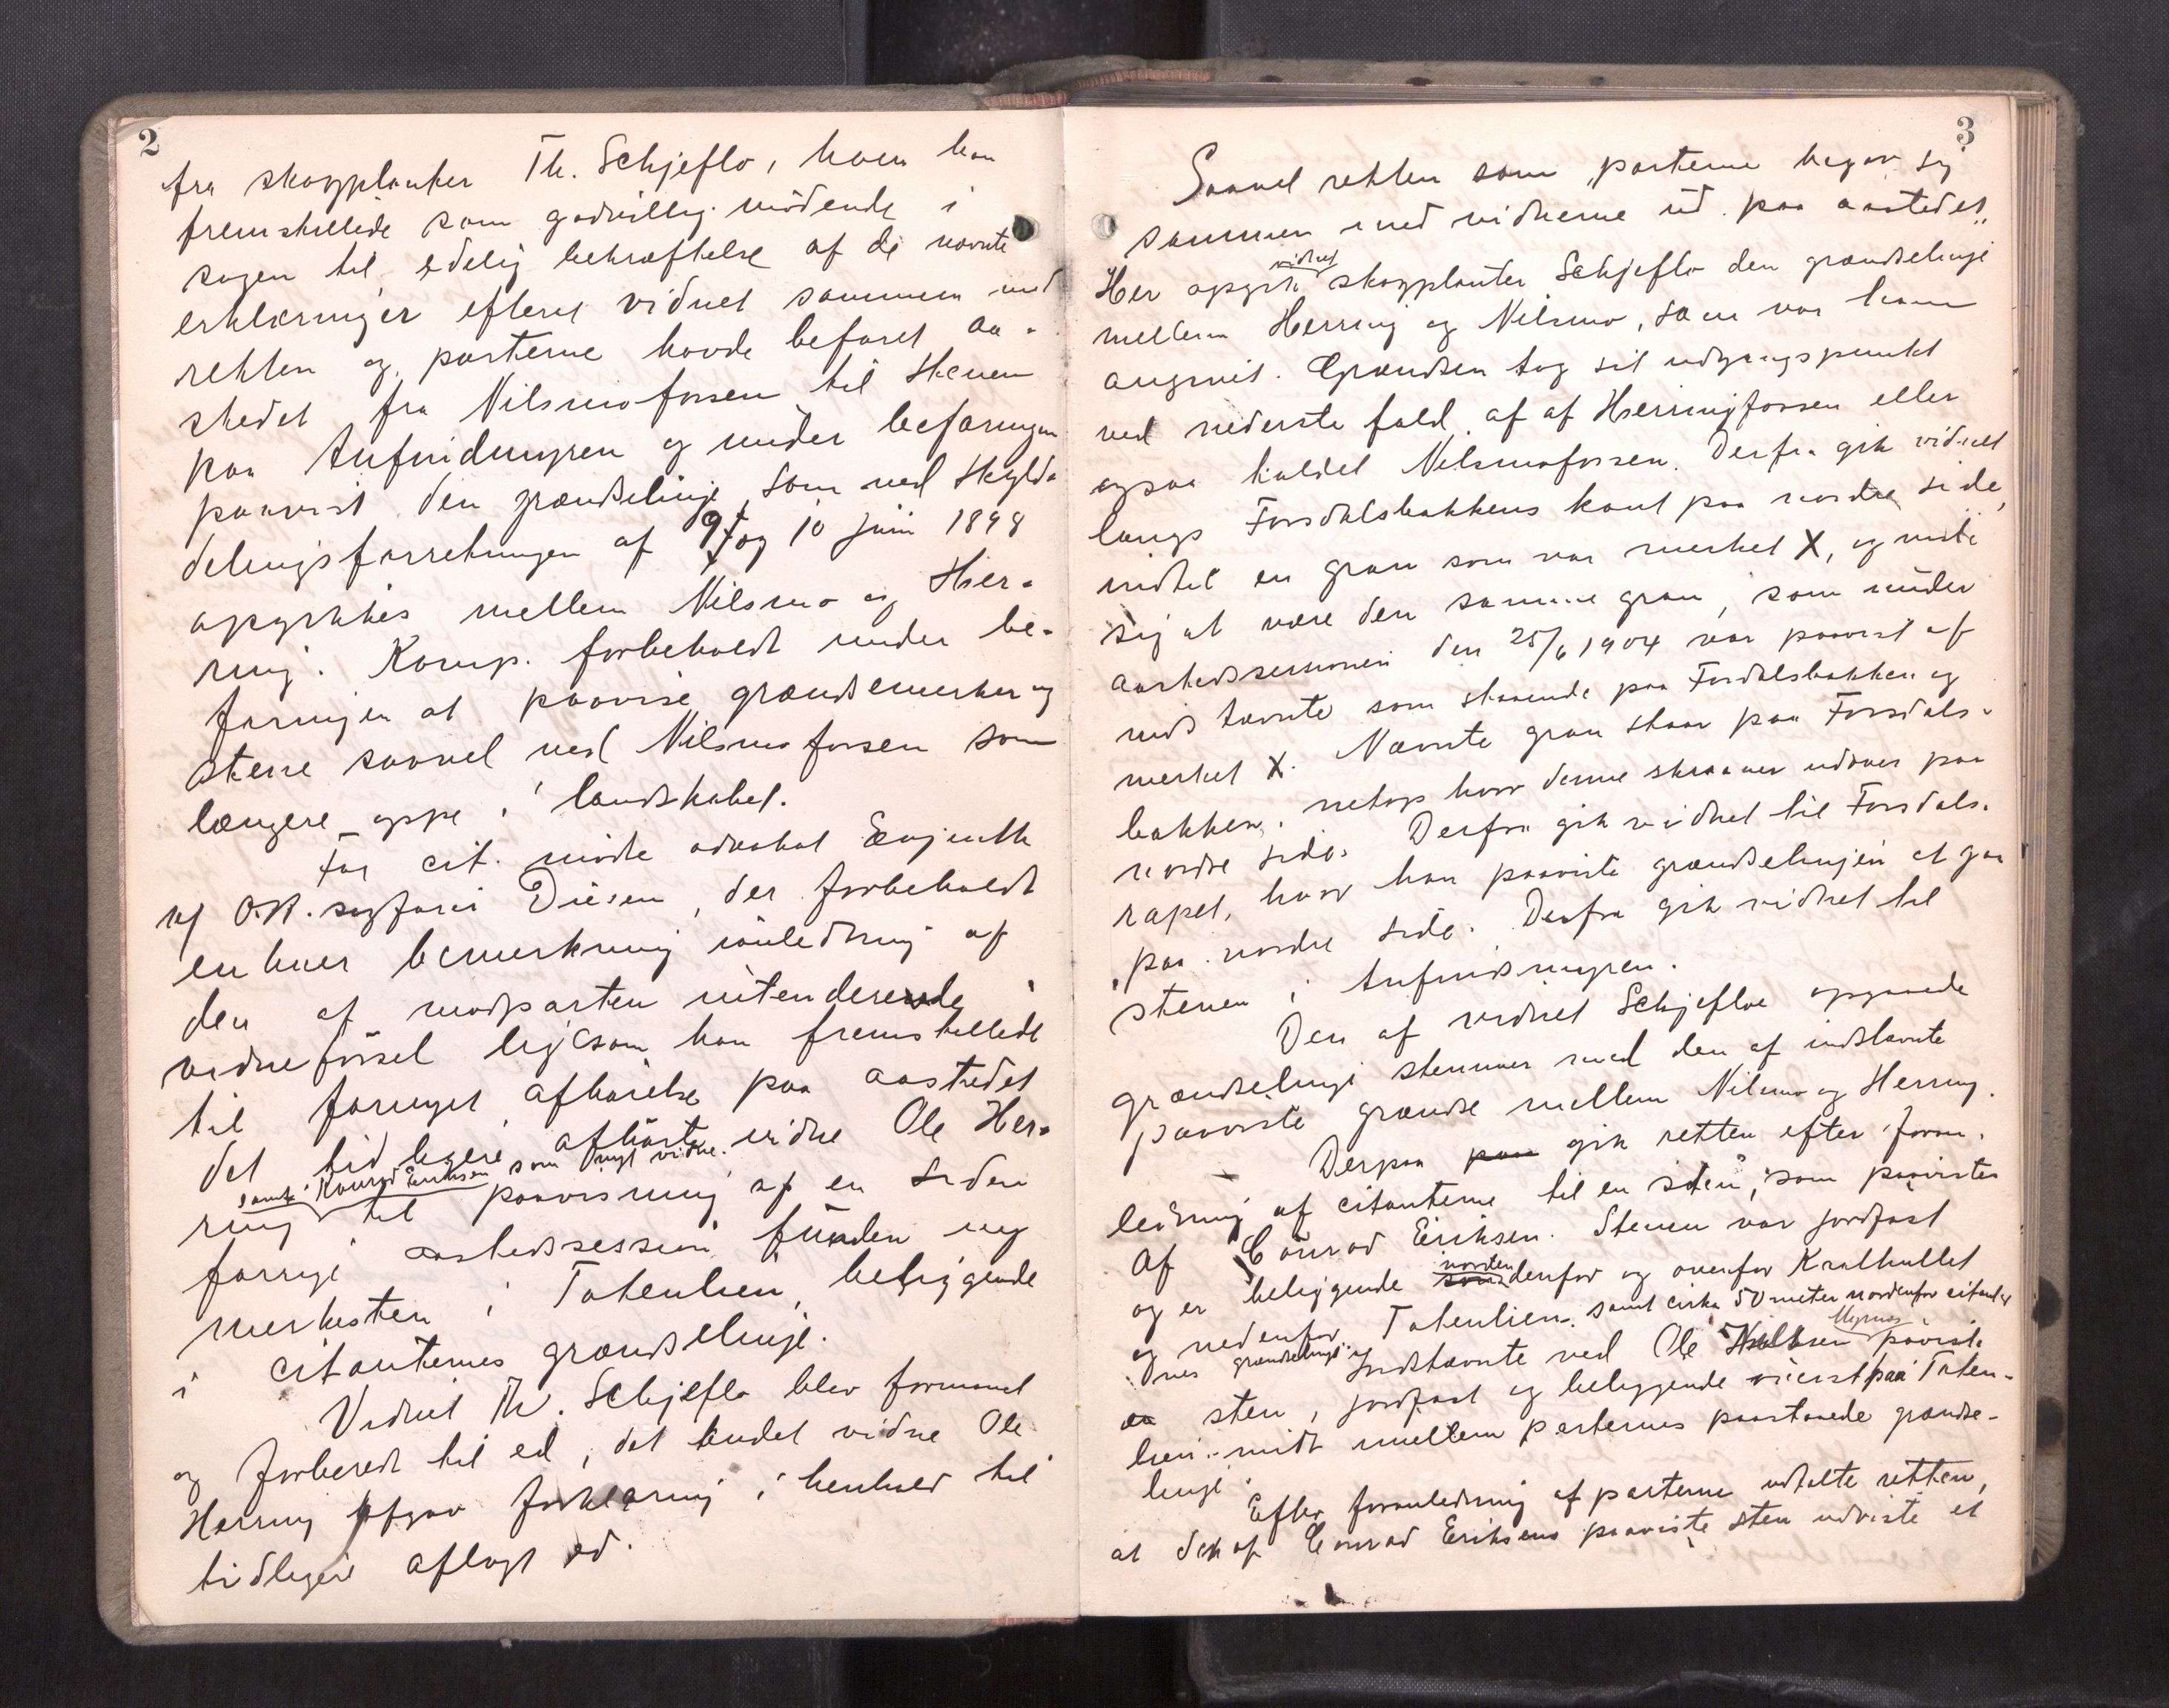 2
fra skogplanter Th. Schjeflo, hvem han
fremstillede som godvillig mödende i
sagen til edelig bekræftelse af de nævnte
erklæringer efterat vidnet sammen med
retten og parterne havde befaret aa-
stedet fra Nilsmofossen til Stenen
paa Aufindmyren og under befaringen
paavist den grændselinje som ved Skyld-
delingsforretningen af 9 og 10 juni 1898
opgikkes mellem Nilsmo og Hier-
ring. Komp. forbeholdt under be-
faringen at paavise grændsemerker og
stene saavel ved Nilsmofossen som
længere oppe i landskabet.
For cit. mödte advokat Evjenth
v/ O.R. sagförer Diesen, der forbeholdt
enhver bemerkning i anledning af
den af modparten intenderede
vidneförsel ligesom han fremstillede
til fornyet afhörelse paa aastedet
det tidligere afhörte vidne Ole Her-
samt Konrad Eriksen som nyt vidne
ring til paavisning af en siden
forrige aastedssession funden ny
merkesten i Tatenlien, beliggende
i citanternes grændselinje.
Vidnet Th. Schjeflo blev formanet
og forberedt til ed, det andet vidne Ole
Herring afgav forklaring i henhold til
tidligere aflagt ed.
3
Saavel retten som parterne begav sig
sammen med vidnerne ud paa aastedet.
vidnet
Her opgik skogplanter Schjeflo den grændselinje
mellem Herring og Nilsmo, som var ham
angivet. Grændsen tog sit udgangspunkt
ved nederste fald af af Hierringfossen eller
ogsaa kaldet Nilsmofossen. Derfra gik vidnet
langs Forsdalsbakkens kant paa nordre side,
indtil en gran som var merket X, og viste
sig at være den samme gran, som under
aastedssessionen den 25/6 1904 var paavist af
indstævnte som staaende paa Forsdalsbakken og
merket X. Nævnte gran staar paa Forsdals-
bakken, netop hvor denne skraaner udover paa
nordre side. Derfra gik vidnet til Forsdals-
rapet, hvor han paaviste grændselinjen at gaa
paa nordre side. Derfra gik vidnet til
stenen i Aufindsmyren.
Den af vidnet Schjefloe opgaaede
grændselinje stemmer med den af indstævnte
paaviste grændse mellem Nilsmo og Herring.
Derpaa paa gik retten efter foran-
ledning af citanterne til en sten, som paavistes
af Conrad Eriksen. Stenen var jordfast
norden
og er beliggende söndenfor og ovenfor Kralhullet
og nedenfor Tatenlien. samt cirka 50 meter nordenfor citanter
nes grændselinje. Indstævnte ved Ole Nilsen paaviste
Myrnes
en sten, jordfast og beliggende överst paa Taten-
lien midt mellem parternes paastaaede grændse-
linje.
Efter foranledning af parterne udtalte retten,
at den af Conrad Eriksens paaviste sten udviste et